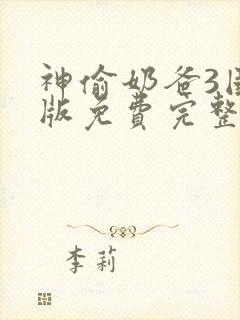 神偷奶爸3
版免费完整
李莉